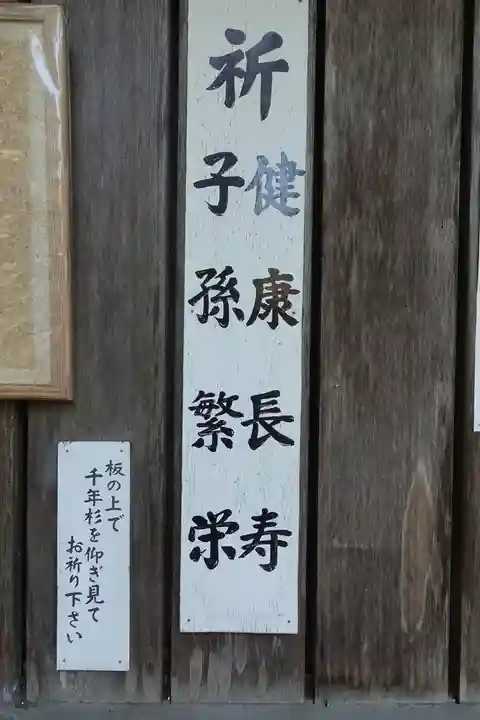 祈
健康長寿
子孫繁栄
板の上で
千年杉を仰ぎ見て
お祈り下さい